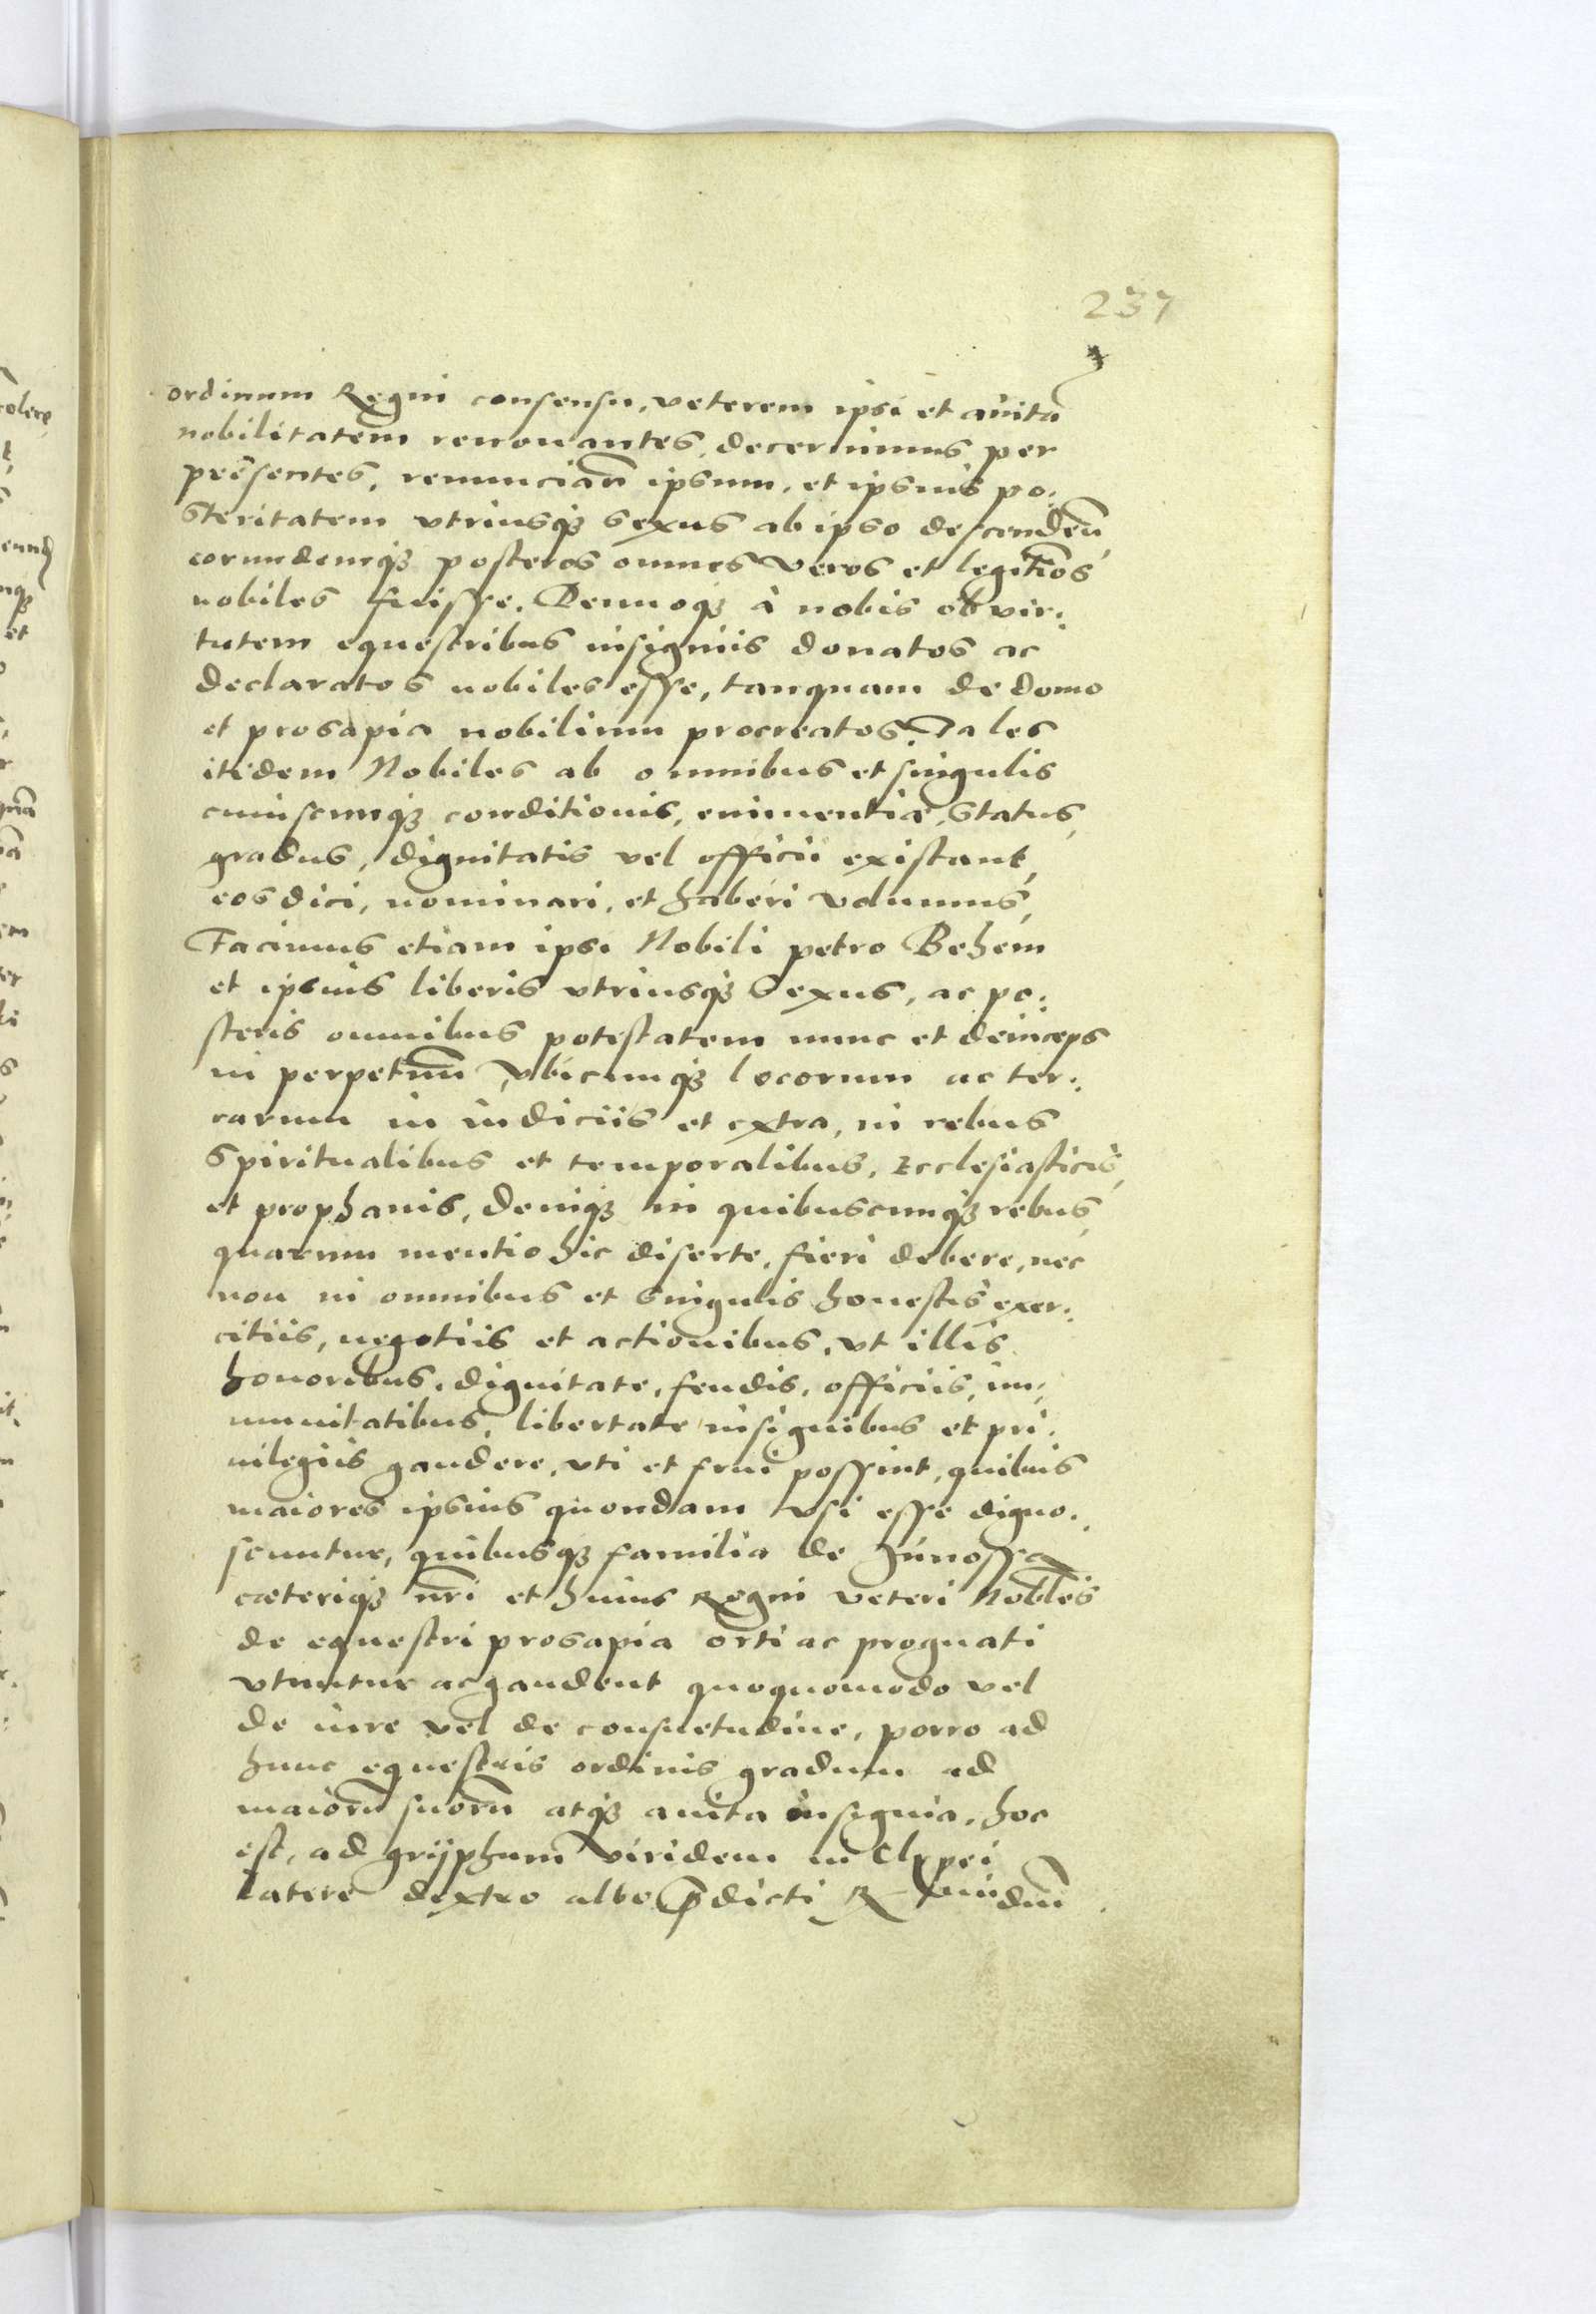 237
ordinum Regni consensu, veterem ipsi et auitā
nobilitatem renouantes, decernimus per
presentes, renunciarī ipsum, et ipsius po:
steritatem vtriusq₃ sexus ab ipso descendēn
eorundemq₃ posteros omnes veros et legitīos
nobiles fuisse. Denuoq₃ à nobis ob vir:
tutem equestribus insigniis donatos ac
declaratos nobiles esse, tanquam de domo
et prosapia nobilium procreatos. Tales
itidem Nobiles ab omnibus et singulis
cuiuscunq₃ conditionis, eminentiæ, status,
gradus, dignitatis vel officii existant,
eos dici, nominari, et haberi volumus,
Facimus etiam ipsi Nobili petro Behem
et ipsius liberis vtriusq₃ sexus, ac po:
steris omnibus potestatem nunc et deinceps
in perpetuū, vbicunq₃ locorum ac ter:
rarum in iudiciis et extra, in rebus
spiritualibus et temporalibus, Ecclesiasticis,
et prophanis, deniq₃ in quibuscunq₃ rebus,
quarum mentio hic diserte, fieri debere, nec
non in omnibus et singulis honestis exer:
citiis, negotiis et actionibus, vt illis
honoribus, dignitate, feudis, officiis, im:
munitatibus, libertate insignibus et pri:
uilegiis gaudere, vti et frui possint, quibus
maiores ipsius quondam vsi esse digno:
scuntur, quibusq₃ familia de
cæteriq₃ nrī et huius Regni veteri Nobīles
de equestri prosapia orti ac prognati
vtuntur ac gaudent quoquomodo vel
de iure vel de consuetudine, porro ad
hunc equestris ordinis gradum ad
maiorū suorū atq₃ auita insignia, hoc
est, ad grÿphum viridem in Clypei
latere dextro albo p̄dicti